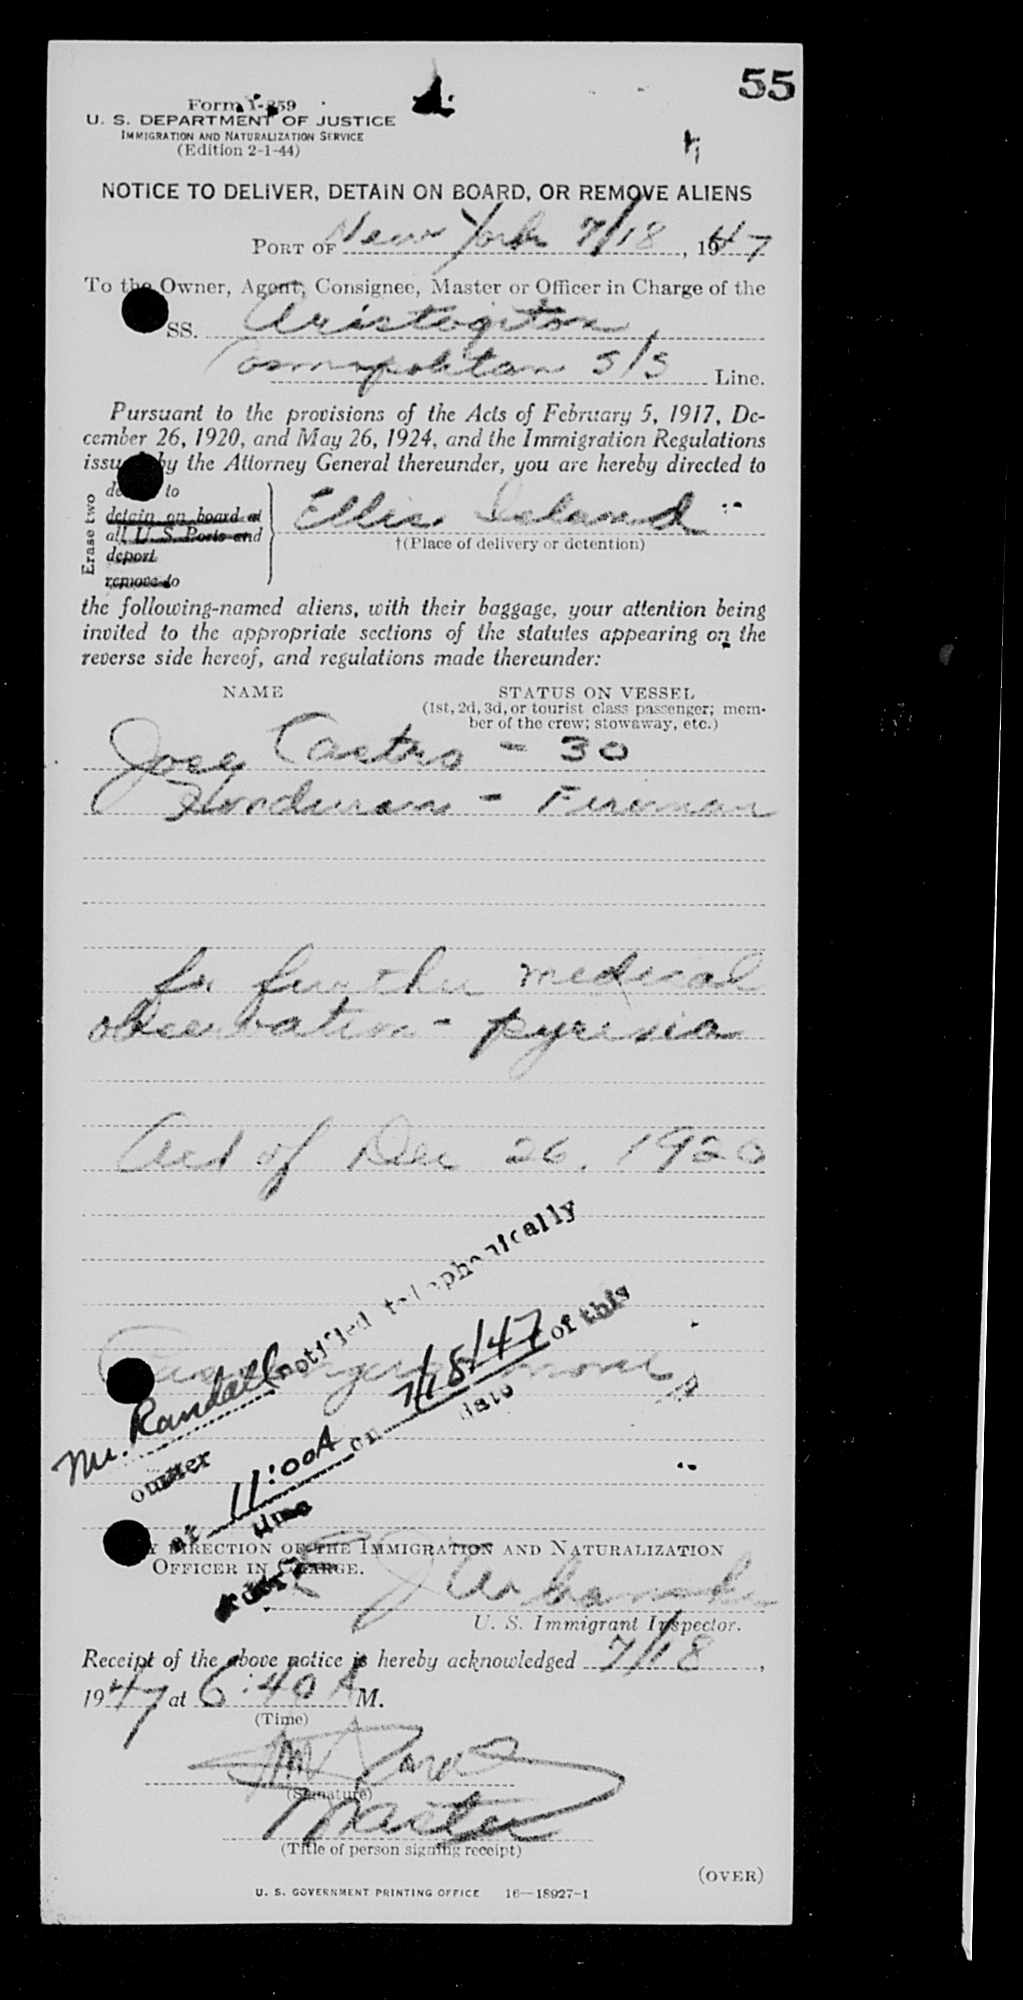 55
Form I-259
U. S. DEPARTMENT OF JUSTICE
IMMIGRATION AND NATURALIZATION SERVICE
(Edition 2-1-44)
NOTICE TO DELIVER, DETAIN ON BOARD, OR REMOVE ALIENS
PORT OF New York 7/18, 1947
To the Owner, Agent, Consignee, Master or Officer in Charge of the
SS. Aristogiton,
Cosmopolitan S/S Line.
Pursuant to the provisions of the Acts of February 5, 1917, De-
cember 26, 1920, and May 26, 1924, and the Immigration Regulations
issued by the Attorney General thereunder, you are hereby directed to
Erase two
to
detain on board at
all U S Ports and
deport
remove to
Ellis Island
†(Place of delivery or detention)
the following-named aliens, with their baggage, your attention being
invited to the appropriate sections of the statutes appearing on the
reverse side hereof, and regulations made thereunder:
NAME STATUS ON VESSEL
(1st, 2d, 3d, or tourist class passenger; mem-
ber of the crew; stowaway, etc.)
Jose Castro - 30
Honduran - Fireman
for further medical
observation - pyrexia
Act of Dec 26, 1920
Mr. Randall notified telephonically
owner
at 11:00A on 7/18/47 of this
time date
BY DIRECTION OF THE IMMIGRATION AND NATURALIZATION
OFFICER IN CHARGE.
U. S. Immigrant Inspector.
Receipt of the above notice is hereby acknowledged 7/18,
1947 at 6:40 A M.
(Time)
(Signature)
Master
(Title of person signing receipt)
(OVER)
U. S. GOVERNMENT PRINTING OFFICE 16—18927-1